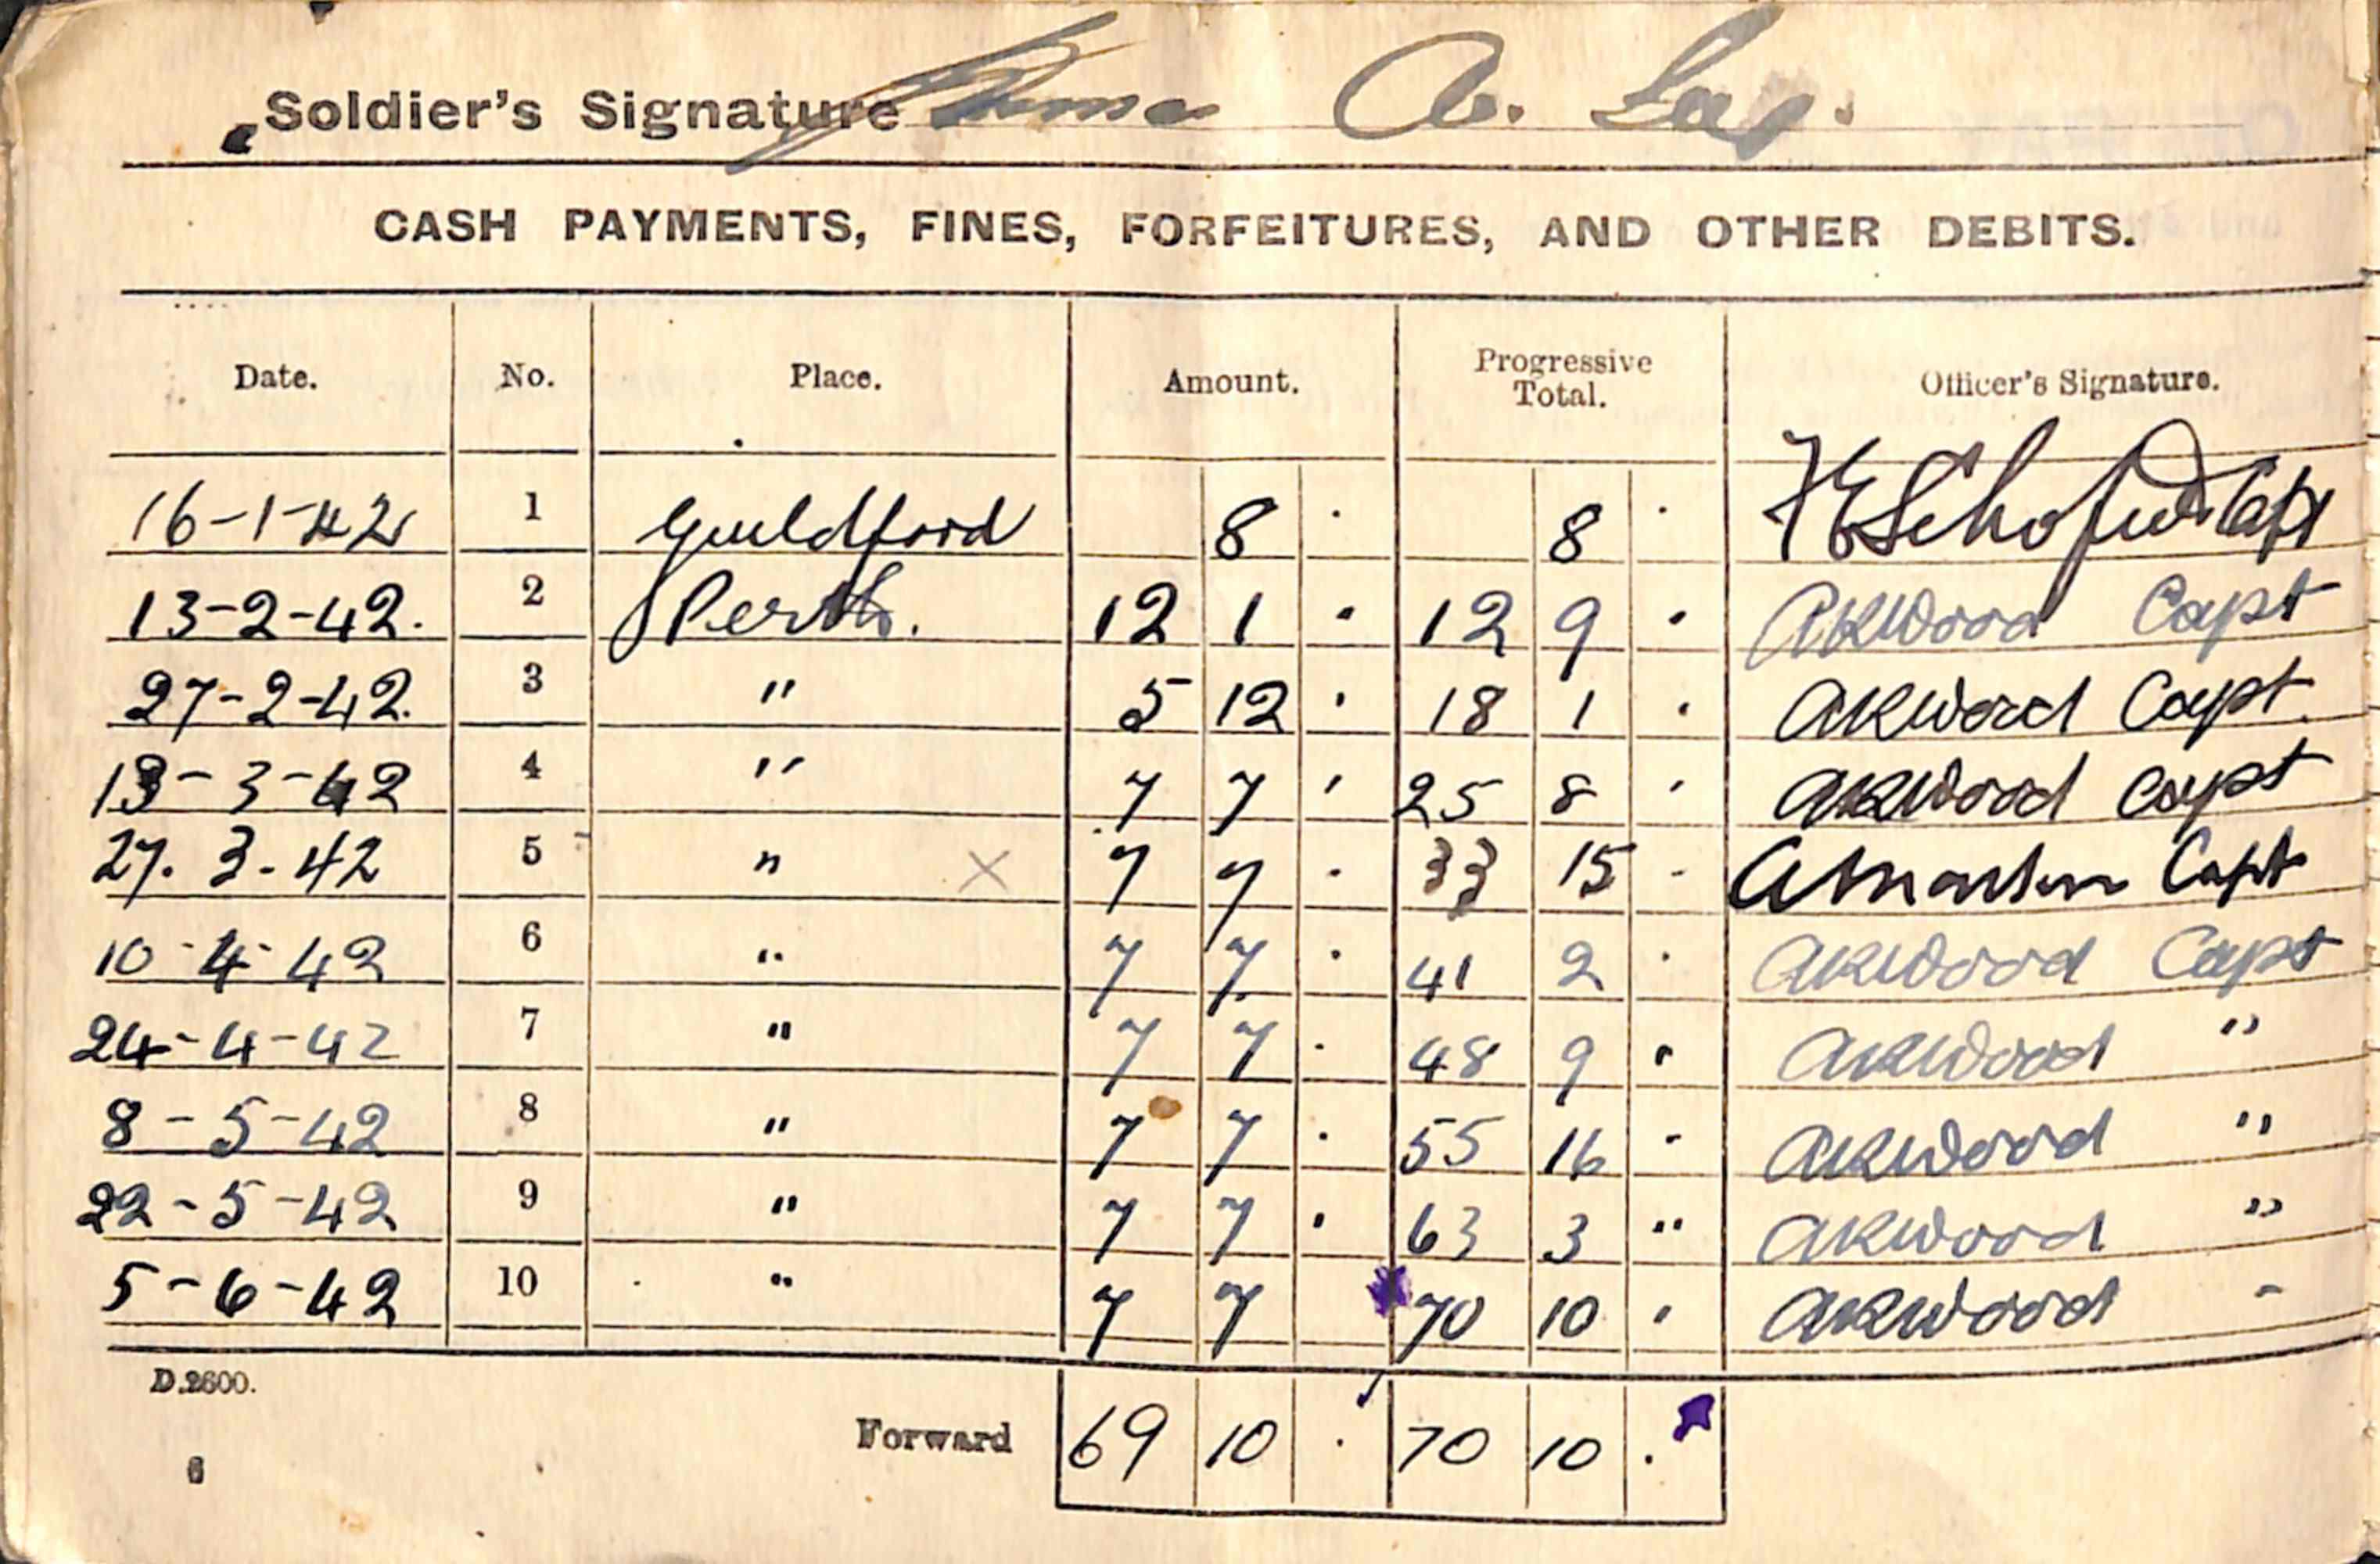 Soldier's Signature A. Lay.
CASH PAYMENTS, FINES, FORFEITURES, AND OTHER DEBITS.
Date. No. Place. Amount. Progressive Total. Officer's Signature.
16-1-42 1 Guildford 8 · 8 · Capt
13-2-42. 2 Perth. 12 1 · 12 9 · AKWood Capt
27-2-42. 3 " 5 12 · 18 1 · AKWood Capt.
13-3-42 4 " 7 7 · 25 8 · AKWood Capt
27.3-42 5 " × 7 7 · 33 15 · Capt
10-4-42 6 " 7 7 · 41 2 · AKWood Capt
24-4-42 7 " 7 7 · 48 9 · AKWood "
8-5-42 8 " 7 7 · 55 16 · AKWood "
22-5-42 9 " 7 7 · 63 3 " AKWood "
5-6-42 10 " 7 7 70 10 · AKWood -
D.2600.
Forward 69 10 · 70 10 ·
6